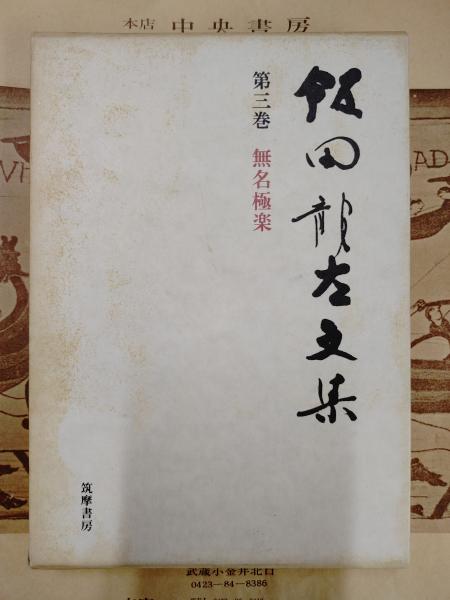 本店 中央書房
飯田龍太文集
第三巻 無名極楽
筑摩書房
AD-
武蔵小金井北口
0423-84-8386